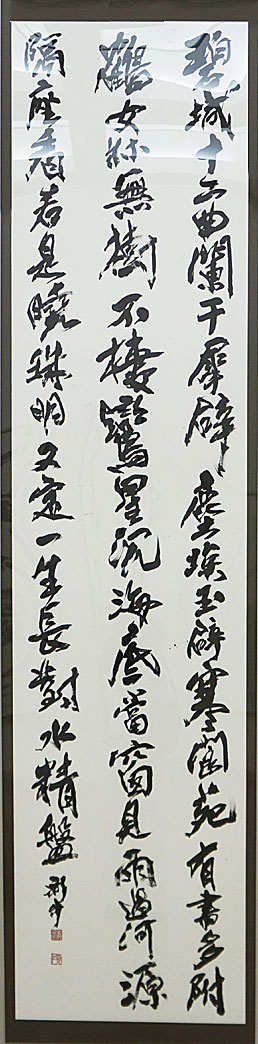 碧城十二曲闌干犀辟塵埃玉辟寒閬苑有書多附
鶴女牀無樹不棲鸞星沉海底當窗見雨過河源
隔座看若是曉珠明又定一生長對水精盤